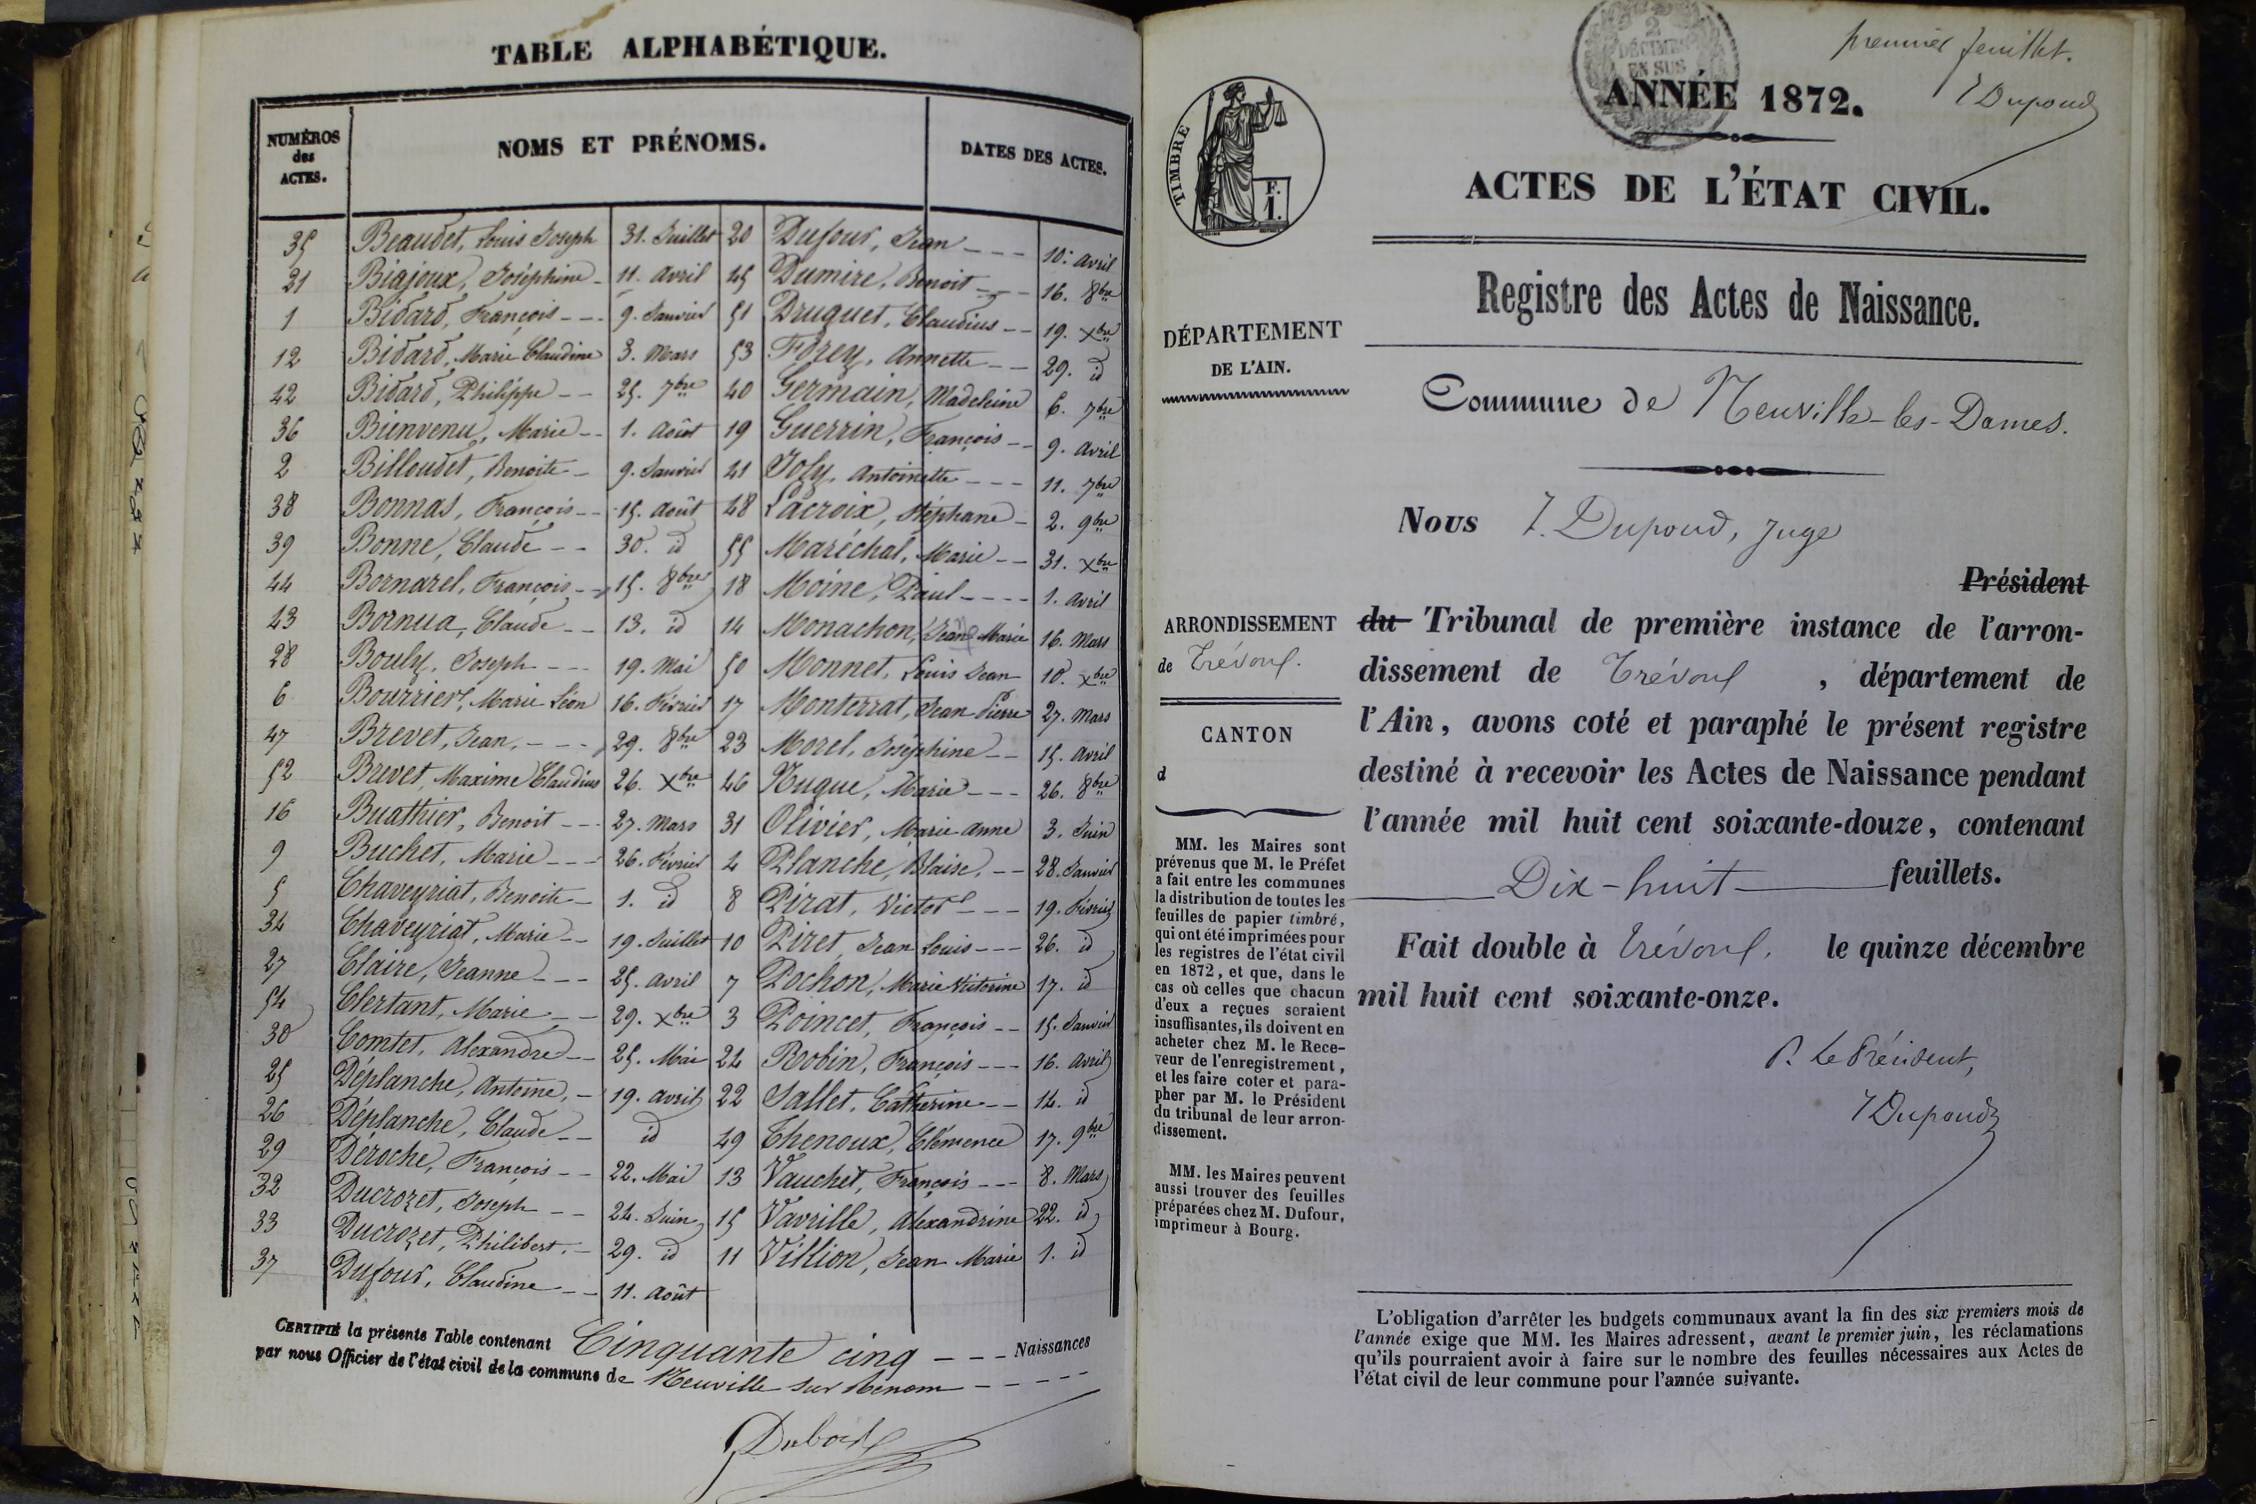 TABLE ALPHABÉTIQUE.
NUMÉROS des ACTES.
NOMS ET PRÉNOMS.
DATES DES ACTES.
35 Beaudet, Louis Joseph 31. Juillet 20 Dufour, Jean 10. avril
21 Biajoux, Joséphine 11. avril 45 Dumire, Benoit 16. 8bre
1 Bidard, François 9. Janvier 51 Druguet, Claudius 19. Xbre
12 Bidard, Marie Claudine 3. Mars 53 Forey, Annette 29. id
42 Bidard, Philippe 25. 7bre 40 Germain, Madeleine 6. 7bre
36 Bienvenu, Marie 1. Août 19 Guerrin, François 9. avril
2 Billoudet, Benoite 9. Janvier 41 Joly, Antoinette 11. 7bre
38 Bonnas, François 15. Août 48 Lacroix, Stéphane 2. 9bre
39 Bonne, Claude 30. id 55 Maréchal, Marie 31. Xbre
44 Bornarel, François 15. 8bre 18 Moine, Paul 1. avril
43 Bornua, Claude 13. id 14 Monachon, Jean Marie 16. Mars
28 Bouly, Joseph 19. Mai 50 Monnet, Louis Jean 10. Xbre
6 Bourrier, Marie Léon 16. Février 17 Monterrat, Jean Pierre 27. Mars
47 Brevet, Jean, 29. 8bre 23 Morel, Joséphine 15. avril
52 Brevet, Maxime Claudius 26. Xbre 46 Nugue, Marie 26. 8bre
16 Buathier, Benoit 27. Mars 31 Olivier, Marie anne 3. Juin
9 Buchet, Marie 26. Février 4 Planche, Blaise 28. Janvier
5 Chaveyriat, Benoite 1. id 8 Pirat, Victor 19. Février
34 Chaveyriat, Marie 19. Juillet 10 Piret, Jean Louis 26. id
27 Claire, Jeanne 25. avril 7 Pochon, Marie Victorine 17. id
54 Clertant, Marie 29. Xbre 3 Poincet, François 15. Janvier
30 Comtet, Alexandre 25. Mai 24 Robin, François 16. avril
25 Déplanche, Antoine, 19. avril 22 Sallet, Catherine 14. id
26 Déplanche, Claude id 49 Thenoux, Clémence 17. 9bre
29 Déroche, François 22. Mai 13 Vauchet, François 8. Mars
32 Ducrozet, Joseph 24. Juin 15 Vavrille, Alexandrine 22. id
33 Ducrozet, Philibert 29. id 11 Villion, Jean Marie 1. id
37 Dufour, Claudine 11. Août
CERTIFIÉ la présente Table contenant Cinquante cinq Naissances
par nous Officier de l'état civil de la commune de Neuville sur Renom
premier feuillet.
2 DÉCIMES EN SUS
ANNÉE 1872.
Dupoud
TIMBRE
F. 1.
ACTES DE L'ÉTAT CIVIL.
Registre des Actes de Naissance.
DÉPARTEMENT
DE L'AIN.
Commune de Neuville-les-Dames.
Nous J. Dupoud, Juge
Président
ARRONDISSEMENT
de Trévoux.
CANTON
d
du Tribunal de première instance de l'arron-
dissement de Trévoux, département de
l'Ain, avons coté et paraphé le présent registre
destiné à recevoir les Actes de Naissance pendant
l'année mil huit cent soixante-douze, contenant
Dix-huit feuillets.
Fait double à Trévoux, le quinze décembre
mil huit cent soixante-onze.
P. Le Président,
Dupoud
MM. les Maires sont
prévenus que M. le Préfet
a fait entre les communes
la distribution de toutes les
feuilles de papier timbré,
qui ont été imprimées pour
les registres de l'état civil
en 1872, et que, dans le
cas où celles que chacun
d'eux a reçues seraient
insuffisantes, ils doivent en
acheter chez M. le Rece-
veur de l'enregistrement,
et les faire coter et para-
pher par M. le Président
du tribunal de leur arron-
dissement.
MM. les Maires peuvent
aussi trouver des feuilles
préparées chez M. Dufour,
imprimeur à Bourg.
L'obligation d'arrêter les budgets communaux avant la fin des six premiers mois de
l'année exige que MM. les Maires adressent, avant le premier juin, les réclamations
qu'ils pourraient avoir à faire sur le nombre des feuilles nécessaires aux Actes de
l'état civil de leur commune pour l'année suivante.